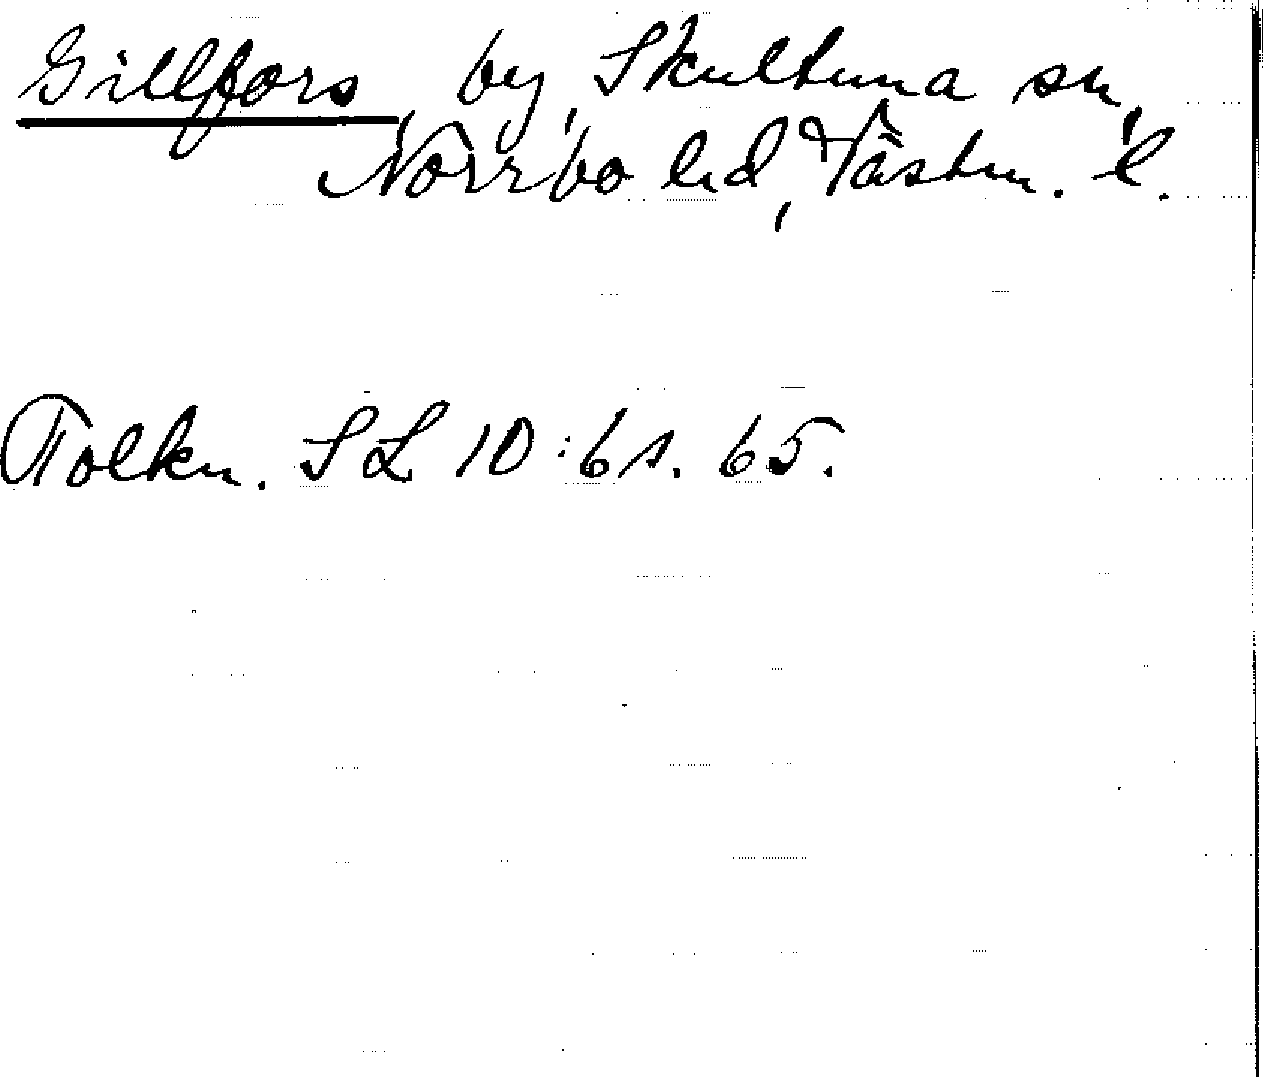 Gillfors, by, Skultuna sn,
Norrbo hd, Västm. l.
Tolkn. SL 10:6 s. 65.